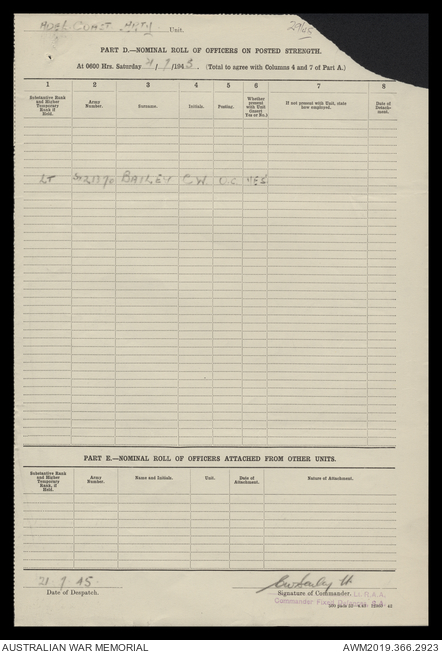 ADEL COAST ARTY Unit.
PART D.—NOMINAL ROLL OF OFFICERS ON POSTED STRENGTH.
At 0600 Hrs. Saturday 21/7/1945. (Total to agree with Columns 4 and 7 of Part A.)
1 2 3 4 5 6 7 8
Substantive Rank and Higher Temporary Rank if Held.
Army Number.
Surname.
Initials.
Posting.
Whether present with Unit (Insert Yes or No.)
If not present with Unit, state how employed.
Date of Detachment.
LT BAILEY C.W. O.C YES
PART E.—NOMINAL ROLL OF OFFICERS ATTACHED FROM OTHER UNITS.
Substantive Rank and Higher Temporary Rank, if Held.
Army Number.
Name and Initials.
Unit.
Date of Attachment.
Nature of Attachment.
21 7 45
Date of Despatch.
Signature of Commander. Lt. R.A.A.
Commander Fixed
AUSTRALIAN WAR MEMORIAL AWM2019.366.2923